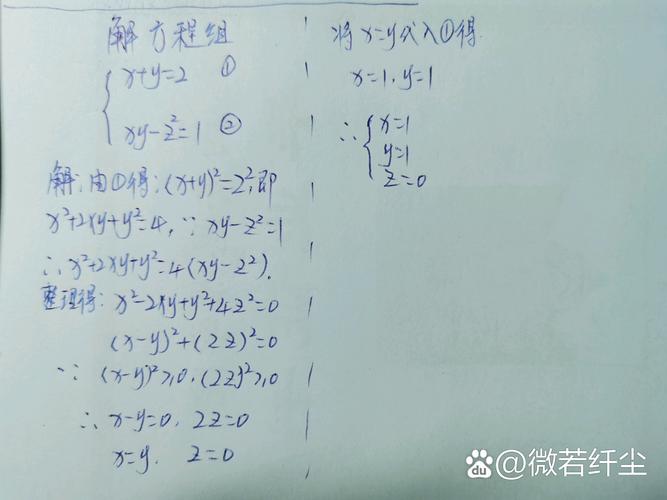 解方程组
x+y=2 ①
xy-z²=1 ②
解:由①得:(x+y)²=2²,即
x²+2xy+y²=4,∵xy-z²=1
∴x²+2xy+y²=4(xy-z²).
整理得:x²-2xy+y²+4z²=0
(x-y)²+(2z)²=0
∵(x-y)²≥0,(2z)²≥0
∴x-y=0,2z=0
x=y, z=0
将x=y代入①得
x=1,y=1
∴x=1
y=1
z=0
du @微若纤尘